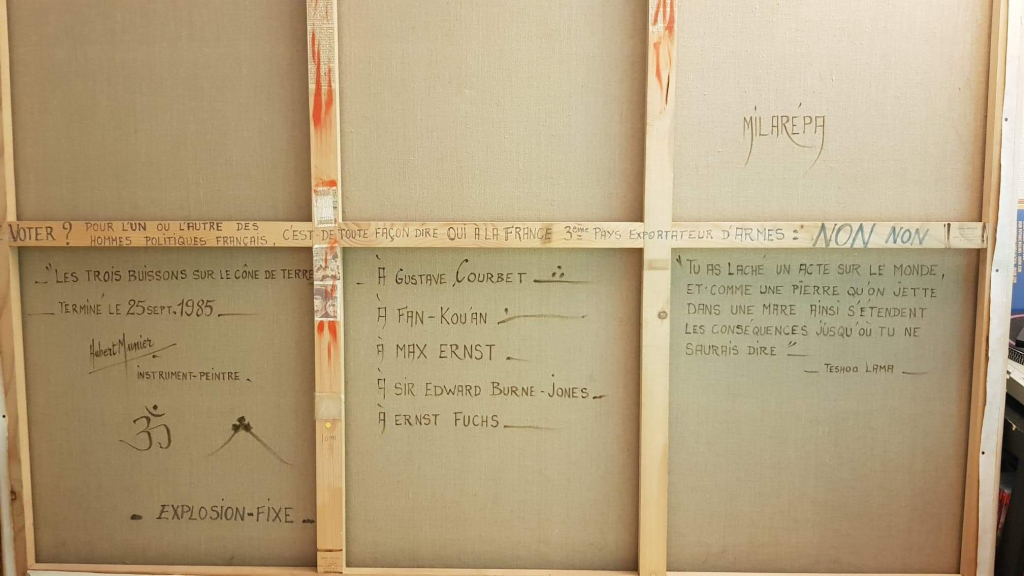 MILARÉPA
VOTER ? POUR L'UN OU L'AUTRE DES
HOMMES POLITIQUES FRANÇAIS, C'EST DE TOUTE FAÇON DIRE OUI A LA FRANCE 3ème PAYS EXPORTATEUR D'ARMES : NON NON
"LES TROIS BUISSONS SUR LE CÔNE DE TERRE
TERMINÉ LE 25 SEPT. 1985
Aubert Munier
INSTRUMENT-PEINTRE.
ॐ
EXPLOSION-FIXE
À GUSTAVE COURBET
À FAN-KOUAN
À MAX ERNST
À SIR EDWARD BURNE-JONES
À ERNST FUCHS
"TU AS LACHÉ UN ACTE SUR LE MONDE,
ET COMME UNE PIERRE QU'ON JETTE
DANS UNE MARE AINSI S'ÉTENDENT
LES CONSÉQUENCES JUSQU'OÙ TU NE
SAURAIS DIRE"
TESHOO LAMA